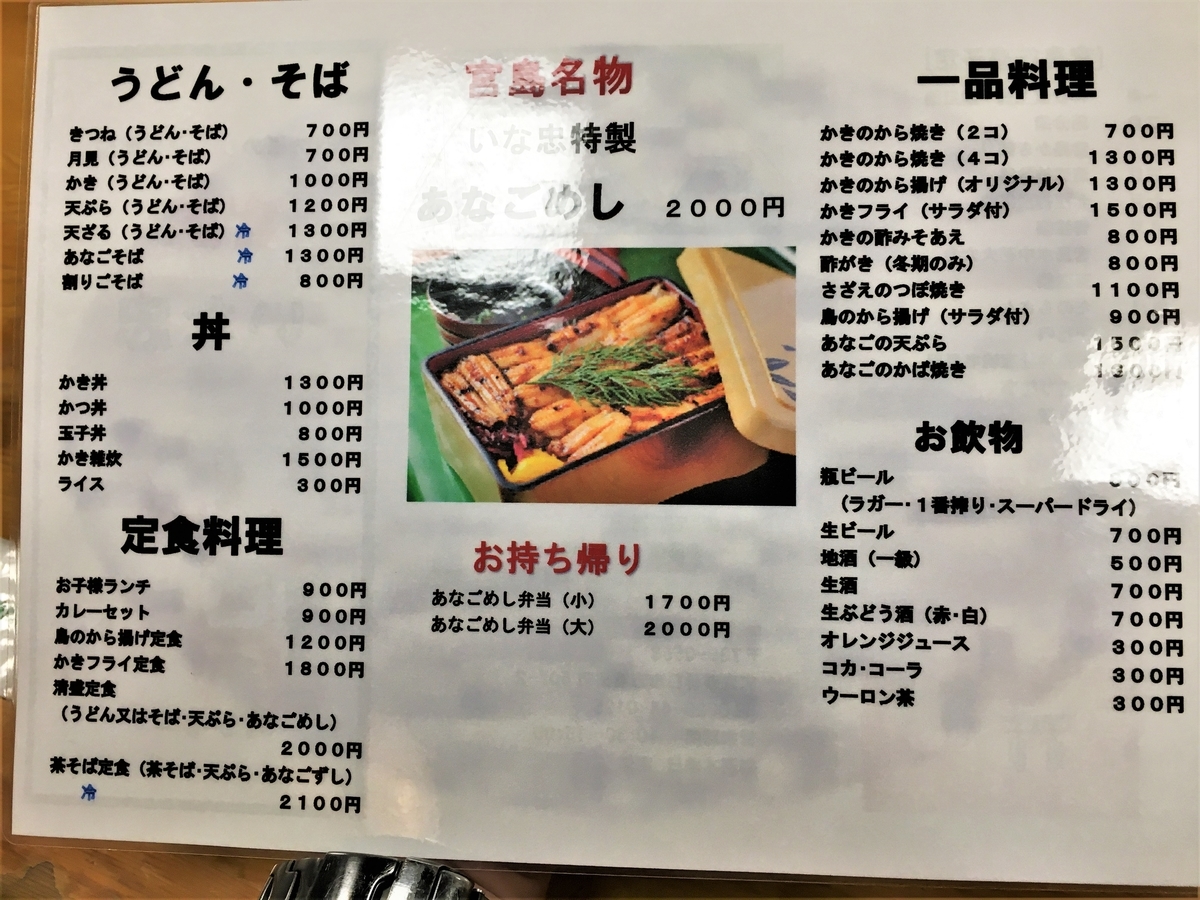 うどん・そば
きつね（うどん・そば） 700円
月見（うどん・そば） 700円
かき（うどん・そば） 1000円
天ぷら（うどん・そば） 1200円
天ざる（うどん・そば） 冷 1300円
あなごそば 冷 1300円
割りごそば 冷 800円
丼
かき丼 1300円
かつ丼 1000円
玉子丼 800円
かき雑炊 1500円
ライス 300円
定食料理
お子様ランチ 900円
カレーセット 900円
鳥のから揚げ定食 1200円
かきフライ定食 1800円
清盛定食
（うどん又はそば・天ぷら・あなごめし）
2000円
茶そば定食（茶そば・天ぷら・あなごずし）
冷 2100円
宮島名物
いな忠特製
あなごめし 2000円
お持ち帰り
あなごめし弁当（小） 1700円
あなごめし弁当（大） 2000円
一品料理
かきのから焼き（2コ） 700円
かきのから焼き（4コ） 1300円
かきのから揚げ（オリジナル） 1300円
かきフライ（サラダ付） 1500円
かきの酢みそあえ 800円
酢がき（冬期のみ） 800円
さざえのつぼ焼き 1100円
鳥のから揚げ（サラダ付） 900円
あなごの天ぷら
あなごのかば焼き
お飲物
瓶ビール
（ラガー・1番搾り・スーパードライ）
生ビール 700円
地酒（一級） 500円
生酒 700円
生ぶどう酒（赤・白） 700円
オレンジジュース 300円
コカ・コーラ 300円
ウーロン茶 300円